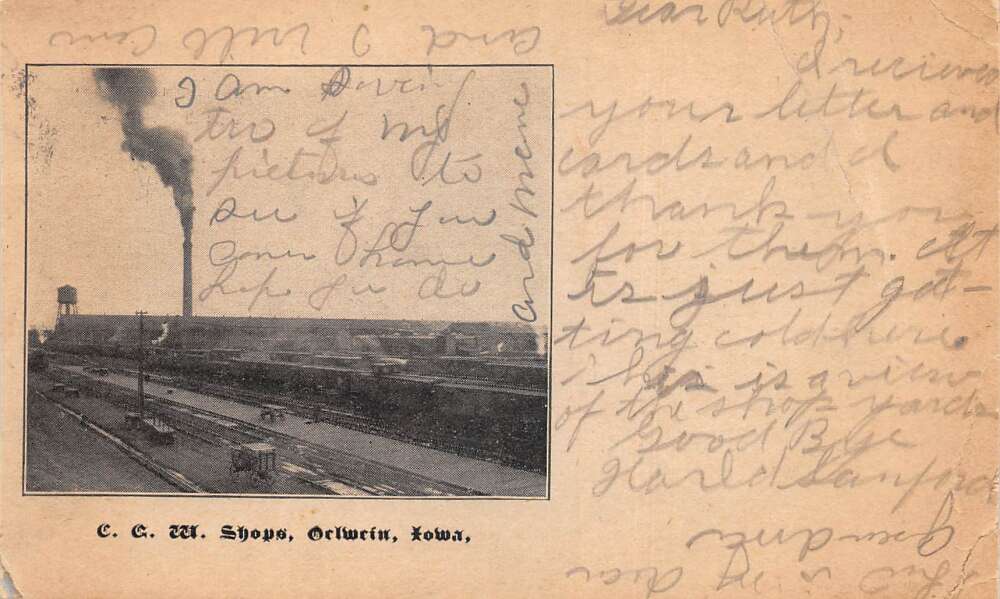 Dear Ruth,
I recieved
your letter and
cards and I
thank you
for them. It
is just get-
ting cold here
this is a view
of the shop yards
Good Bye
Harld Sanford
I Am
two of my
pictures to
see if you
come home
hop you do
and
and I will
C. G. W. Shops, Oelwein, Iowa,